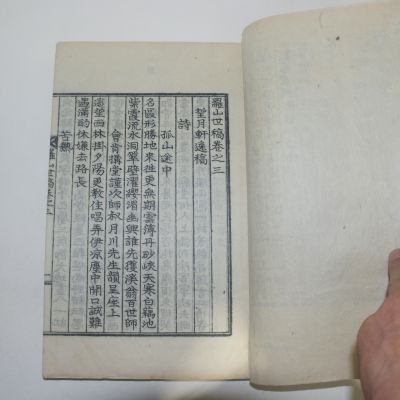 羅山世稿卷之三
望月軒逸稿
詩
孤山途中
名區形勝地來往更無期雲薄丹砂峽天寒白鶴池
紫霞流水洞翠壁濯纓湄幽興誰先獲溪翁百世師
會肯構堂謹次師叔月川先生韻呈座上
遠望西林掛夕陽更教低唱弄伊涼塵中開口誠難
遇滿酌休嫌去路長
苦熱
羅山世稿卷之三
一